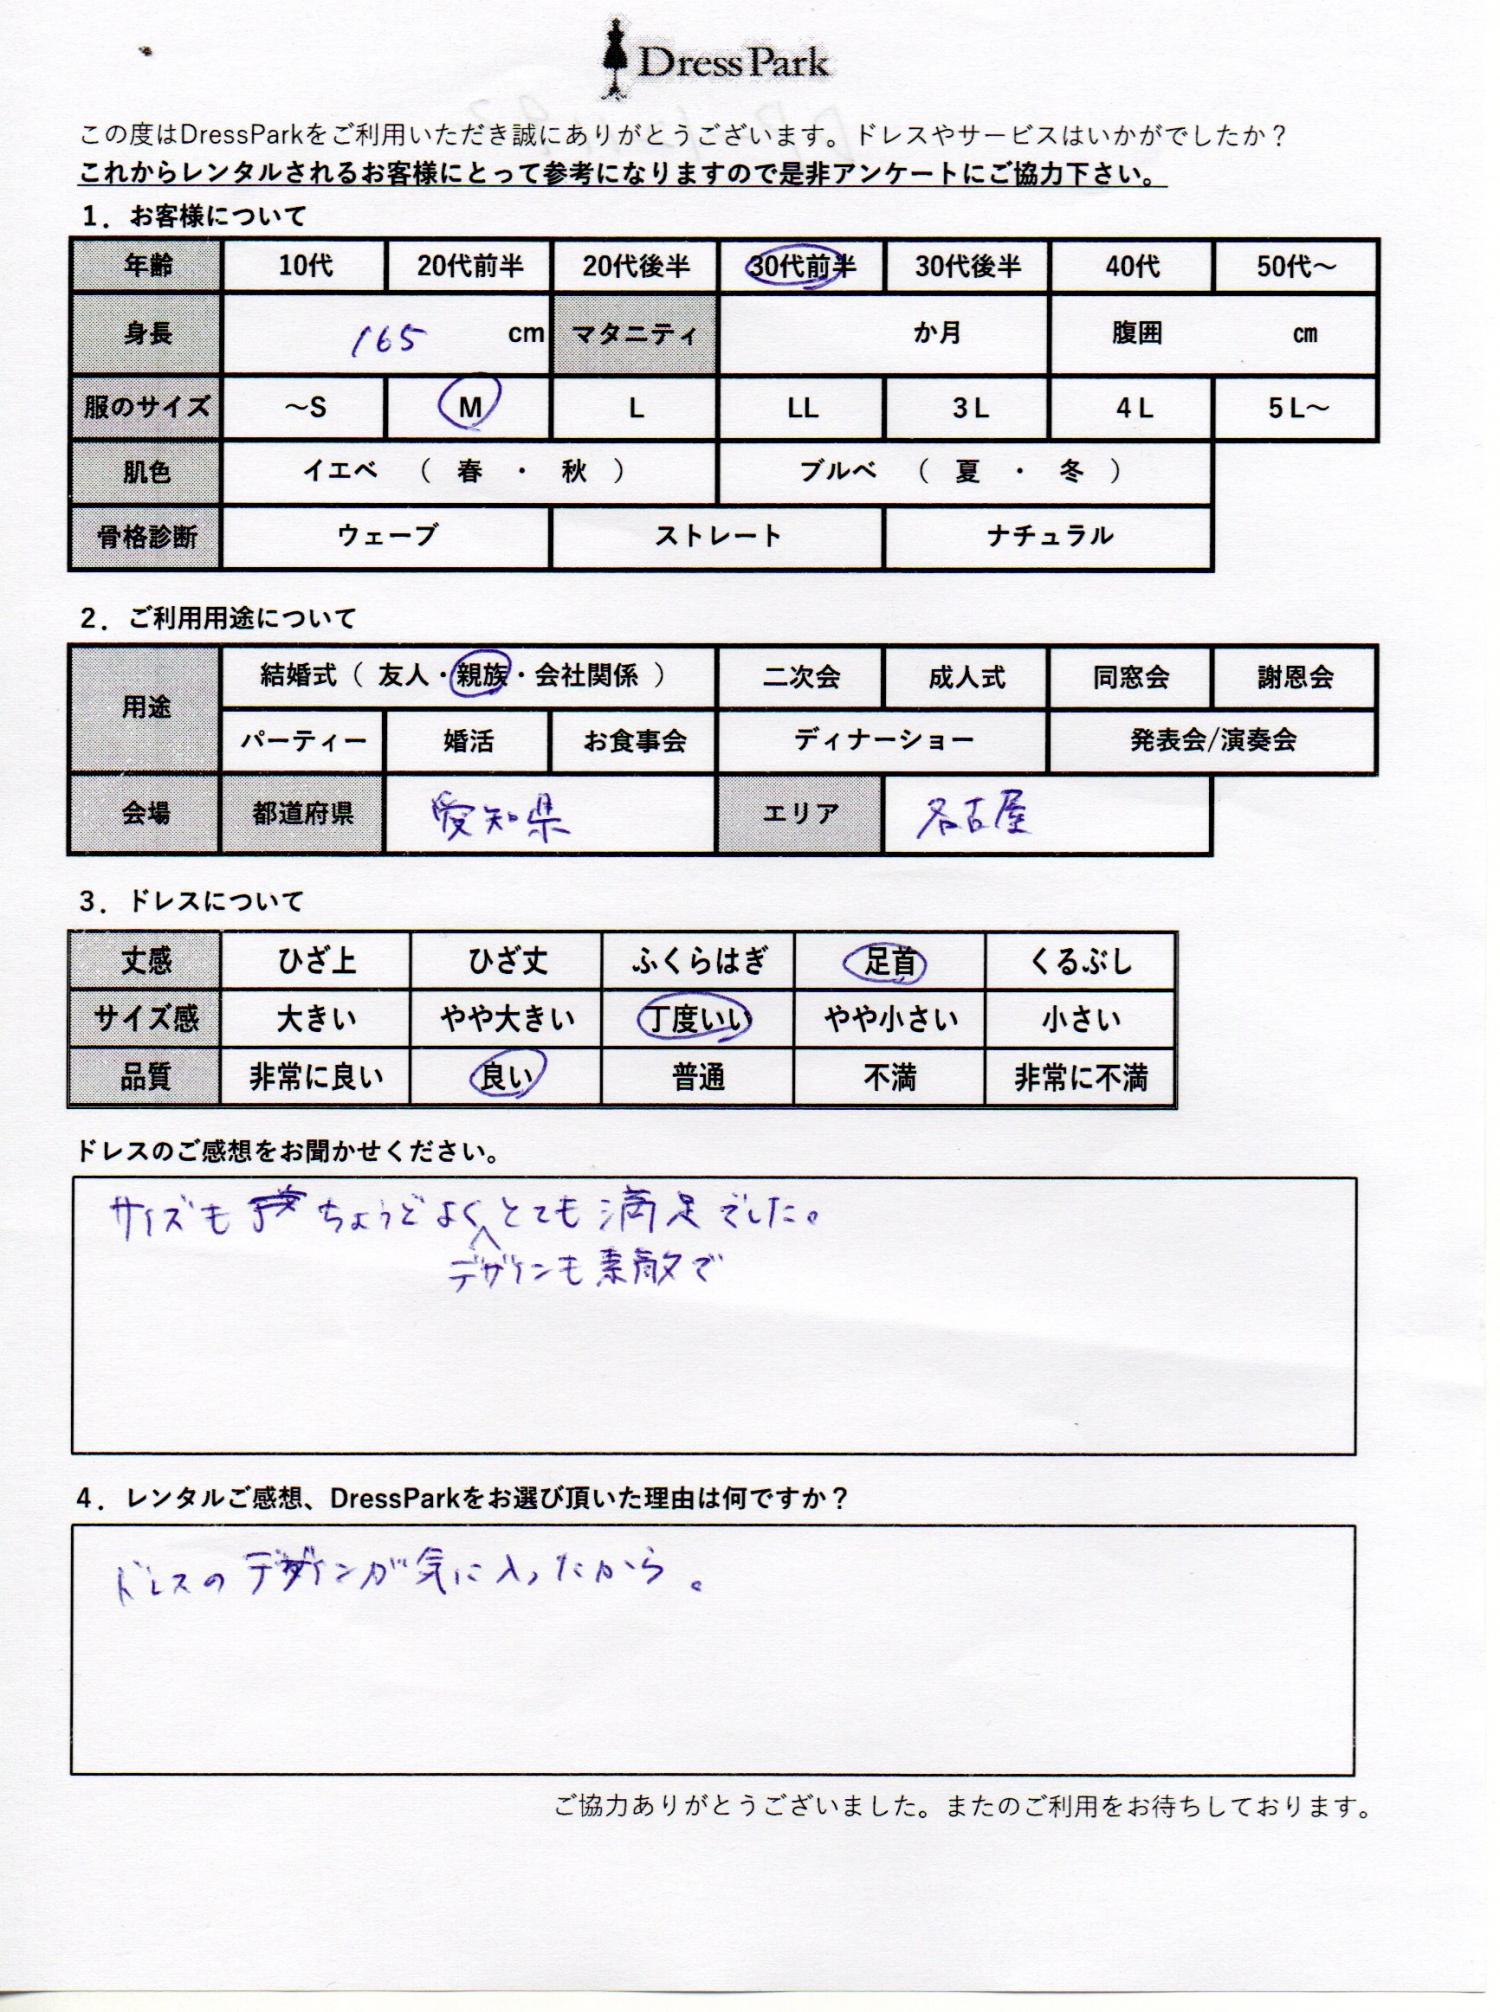 Dress Park
この度はDressParkをご利用いただき誠にありがとうございます。ドレスやサービスはいかがでしたか？
これからレンタルされるお客様にとって参考になりますので是非アンケートにご協力下さい。
1．お客様について
年齢 10代 20代前半 20代後半 30代前半 30代後半 40代 50代～
身長 165 cm マタニティ か月 腹囲 ㎝
服のサイズ ～S M L LL 3L 4L 5L～
肌色 イエベ （ 春 ・ 秋 ） ブルベ （ 夏 ・ 冬 ）
骨格診断 ウェーブ ストレート ナチュラル
2．ご利用用途について
用途 結婚式（ 友人・親族・会社関係 ） 二次会 成人式 同窓会 謝恩会
パーティー 婚活 お食事会 ディナーショー 発表会/演奏会
会場 都道府県 愛知県 エリア 名古屋
3．ドレスについて
丈感 ひざ上 ひざ丈 ふくらはぎ 足首 くるぶし
サイズ感 大きい やや大きい 丁度いい やや小さい 小さい
品質 非常に良い 良い 普通 不満 非常に不満
ドレスのご感想をお聞かせください。
サイズも ちょうどよくとても満足でした。
デザインも素敵で
4．レンタルご感想、DressParkをお選び頂いた理由は何ですか？
ドレスのデザインが気に入ったから。
ご協力ありがとうございました。またのご利用をお待ちしております。